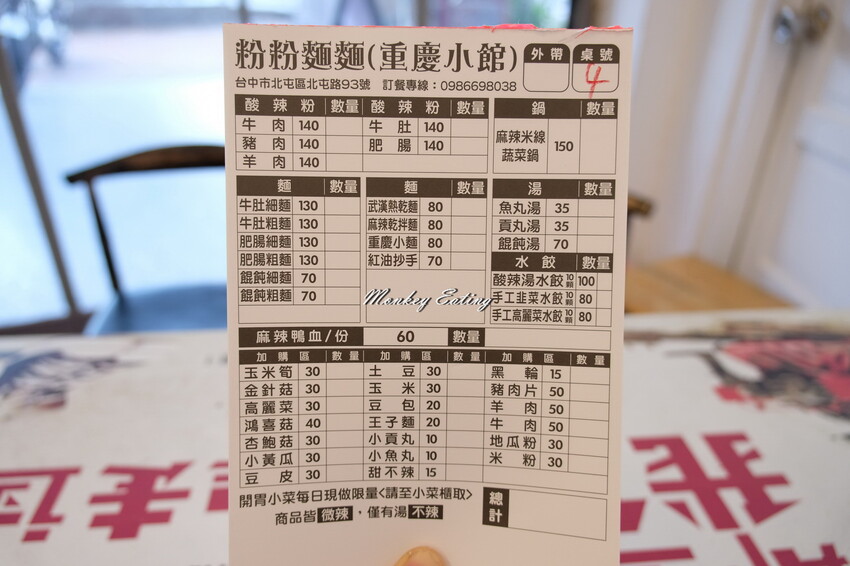 粉粉麵麵(重慶小館) 外帶 桌號
台中市北屯區北屯路93號 訂餐專線：0986698038 4
酸辣粉 數量 酸辣粉 數量 鍋 數量
牛肉 140 牛肚 140 麻辣米線蔬菜鍋 150
豬肉 140 肥腸 140
羊肉 140
麵 數量 麵 數量 湯 數量
牛肚細麵 130 武漢熱乾麵 80 魚丸湯 35
牛肚粗麵 130 麻辣乾拌麵 80 貢丸湯 35
肥腸細麵 130 重慶小麵 80 餛飩湯 70
肥腸粗麵 130 紅油抄手 70 水餃 數量
餛飩細麵 70 酸辣湯水餃10顆 100
餛飩粗麵 70 手工韭菜水餃10顆 80
手工高麗菜水餃10顆 80
Monkey Eating
麻辣鴨血/份 60 數量
加購區 數量 加購區 數量 加購區 數量
玉米筍 30 土豆 30 黑輪 15
金針菇 30 玉米 30 豬肉片 50
高麗菜 30 豆包 20 羊肉 50
鴻喜菇 40 王子麵 20 牛肉 50
杏鮑菇 30 小貢丸 10 地瓜粉 30
小黃瓜 30 小魚丸 10 米粉 30
豆皮 30 甜不辣 15
開胃小菜每日現做限量<請至小菜櫃取> 總計
商品皆微辣，僅有湯不辣